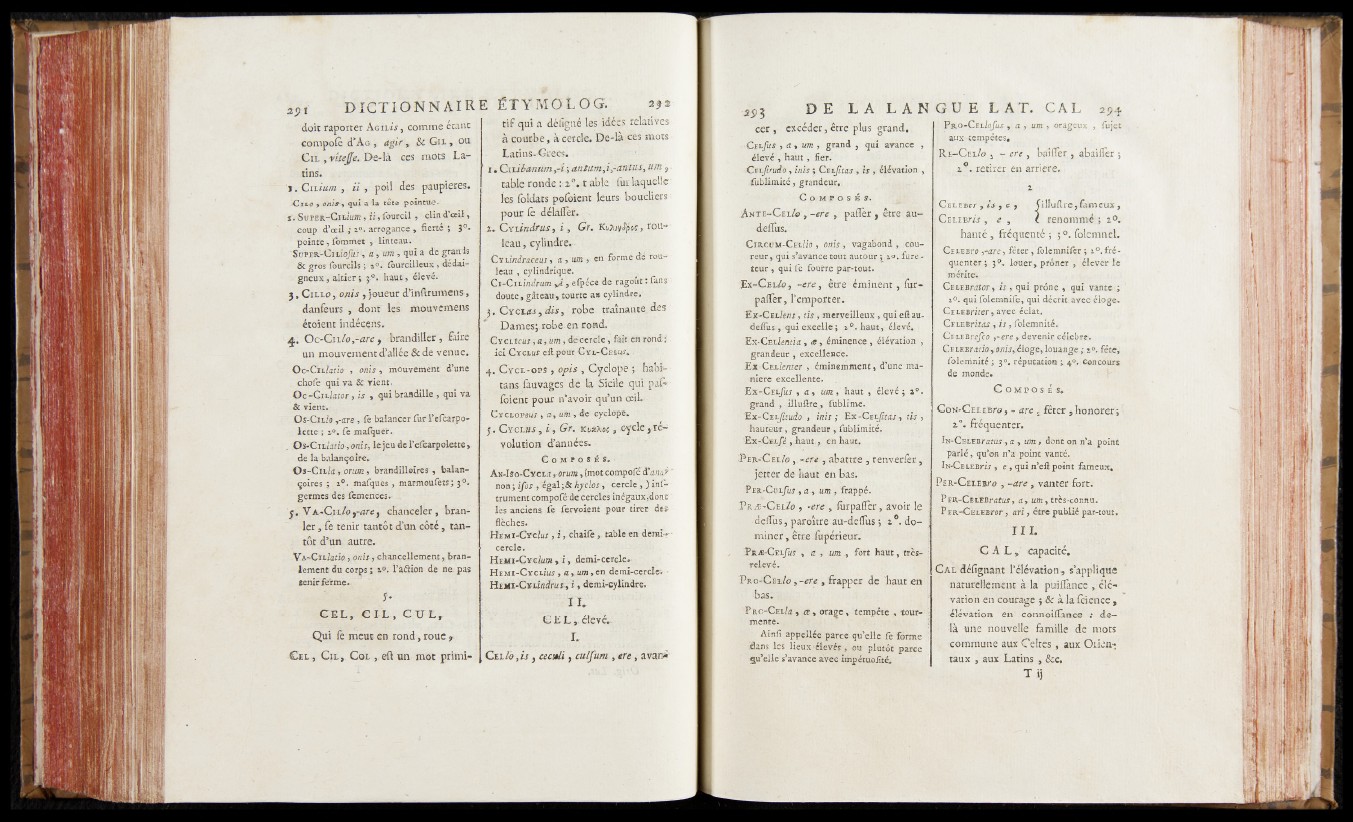 291 DICTIONNAIRE ÉTYMOLOG. 292
doit raporter AGILis, comme étant
compoſé d'AG, agir, & GIL, ou
CIL, viteſſe. De-là ces mots La-
tins.
1. CILium, ii, poil des paupieres.
CILO, onis, qui a la tête pointue.
2. SUPER-CILium, ii, ſourcil, clin d'œil,
coup d'œil; 2°. arrogance, fierté; 3°.
pointe, ſommet, linteau.
SUPER-CILioſus, a, um, qui a de grands
& gros ſourcils; 2°. ſourcilleux, dédai-
gneux, altier; 3°. haut, élevé.
3. CILLO, onis, joueur d'inſtrumens,
danſeurs, dont les mouvemens
étoient indécens.
4. OC-CILlo,-are, brandiller, faire
un mouvement d'allée & de venue.
OC-CILlatio, onis, mouvement d'une
choſe qui va & vient.
OC-CILlator, is, qui brandille, qui va
& vient.
OS-CILlo,-are, ſe balancer ſur l'eſcarpo-
lette; 2°. ſe maſquer.
OS-CILlatio, onis, le jeu de l'eſcarpolette,
de la balançoire.
OS-CILla, orum, brandilloires, balan-
çoires; 2°. maſques, marmouſets; 3°.
germes des ſemences.
5. VA-CILlo,-are, chanceler, bran-
ler, ſe tenir tantôt d'un côté, tan-
tôt d'un autre.
VA-CILlatio, onis, chancellement, bran-
lement du corps; 2°. l'action de ne pas
tenir ferme.
5.
CEL, CIL, CUL,
Qui ſe meut en rond, roue,
CEL, CIL, COL, eſt un mot primi-
tif qui a déſigné les idées relatives
à courbe, à cercle. De-là ces mots
Latins-Grecs.
1. CILIbantum,-i; antum,i,-antus, um,
table ronde: 2°. table ſur laquelle
les ſoldats poſoient leurs boucliers
pour ſe délaſſer.
2. CYLindrus, i, Gr. Κυλινδρος, rou-
leau, cylindre.
CYLindraceus, a, um, en forme de rou-
leau, cylindrique.
CI-CILindrum,i, eſpéce de ragoût: ſans
doute, gâteau, tourte au cylindre.
3. CYCLas, dis, robe traînante des
Dames; robe en rond.
CYCLicus, a, um, de cercle, fait en rond:
ici CYCLUS eſt pour CYL-CELUS.
4. CYCL-OPS, opis, Cyclope; habi-
tans ſauvages de la Sicile qui paſ-
ſoient pour n'avoir qu'un œil.
CYCLOPeus, a, um, de cyclope.
5. CYCLUS, i, Gr. Κυκλος, cycle, ré-
volution d'années.
COMPOSÉS.
AN-ISO-CYCLA, orum, (mot compoſé d'an
non; iſos, égal; & kyclos, cercle,) inſ-
trument compoſé de cercles inégaux, dont
les anciens ſe ſervoient pour tirer des
flèches.
HEMI-CYClus, i, chaiſe, table en demi-
cercle.
HEMI-CYClum, i, demi-cercle.
HEMI-CYClius, a, um, en demi-cercle.
HEMI-CYLindrus, i, demi-cylindre.
II.
CEL, élevé.
I.
CELlo, is, ceculi, culſum, ere, avan-
293 DE LA LANGUE LAT. CAL 294
cer, excéder, être plus grand.
CELſus, a, um, grand, qui avance,
élevé, haut, fier.
CELſitudo, inis; CELſitas, is, élévation,
ſublimité, grandeur.
COMPOSÉS.
ANTE-CELlo, -ere, paſſer, être au-
deſſus.
CIRCUM-CELlio, onis, vagabond, cou-
reur, qui s'avance tout autour; 2°. fure-
teur, qui ſe fourre par-tout.
EX-CELlo, -ere, être éminent, ſur-
paſſer, l'emporter.
EX-CELlens, tis, merveilleux, qui eſt au-
deſſus, qui excelle; 2°. haut, élevé.
EX-CELlentia, æ, éminence, élévation,
grandeur, excellence.
EX-CELlenter, éminemment, d'une ma-
niere excellente.
EX-CELſus, a, um, haut, élevé; 2°.
grand, illuſtre, ſublime.
EX-CELſitudo, inis; EX-CELſitas, tis,
hauteur, grandeur, ſublimité.
EX-CELſè, haut, en haut.
PER-CELlo, -ere, abattre, renverſer,
jetter de haut en bas.
PER-CULſus, a, um, frappé.
PRÆ-CELlo, -ere, ſurpaſſer, avoir le
deſſus, paroître au-deſſus; 2°. do-
miner, être ſupérieur.
PRÆ-CELſus, a, um, fort haut, très-
relevé.
PRO-CELlo,-ere, frapper de haut en
bas.
PRO-CELla, æ, orage, tempête, tour-
mente.
Ainſi appellée parce qu'elle ſe forme
dans les lieux élevés, ou plutôt parce
qu'elle s'avance avec impétuoſité.
PRO-CELloſus, a, um, orageux, ſujet
aux tempêtes.
RE-CELlo, -ere, baiſſer, abaiſſer;
2°. retirer en arriere.
2
CELEBER, is, e, illuſtre, fameux,
CELEBris, e, renommé; 2°.
hanté, fréquenté; 3°. ſolemnel.
CELEBRo,-are, fêter, ſolemniſer; 2°. fré-
quenter; 3°. louer, prôner, élever le
mérite.
CELEBRator, is, qui prône, qui vante;
2°. qui ſolemniſe, qui décrit avec éloge.
CELEBRiter, avec éclat.
CELEBRitas, is, ſolemnité.
CELEBReſco,-ere, devenir célebre.
CELEBRatio, onis, éloge, louange; 2°. fête,
ſolemnité; 3°. réputation; 4°. concours
de monde.
COMPOSÉS.
CON-CELEBRo, -are, fêter, honorer;
2°. fréquenter.
IN-CELEBRatus, a, um, dont on n'a point
parlé, qu'on n'a point vanté.
IN-CELEBRis, e, qui n'eſt point fameux.
PER-CELEBRo, -are, vanter fort.
PER-CELEBRatus, a, um, très-connu.
PER-CELEBROR, ari, être publié par-tout.
III.
CAL, capacité.
CAL déſignant l'élévation, s'applique
naturellement à la puiſſance, élé-
vation en courage; & à la ſcience,
élévation en connoiſſance: de-
là une nouvelle famille de mots
commune aux Celtes, aux Orien-
taux, aux Latins, &c.
T ij